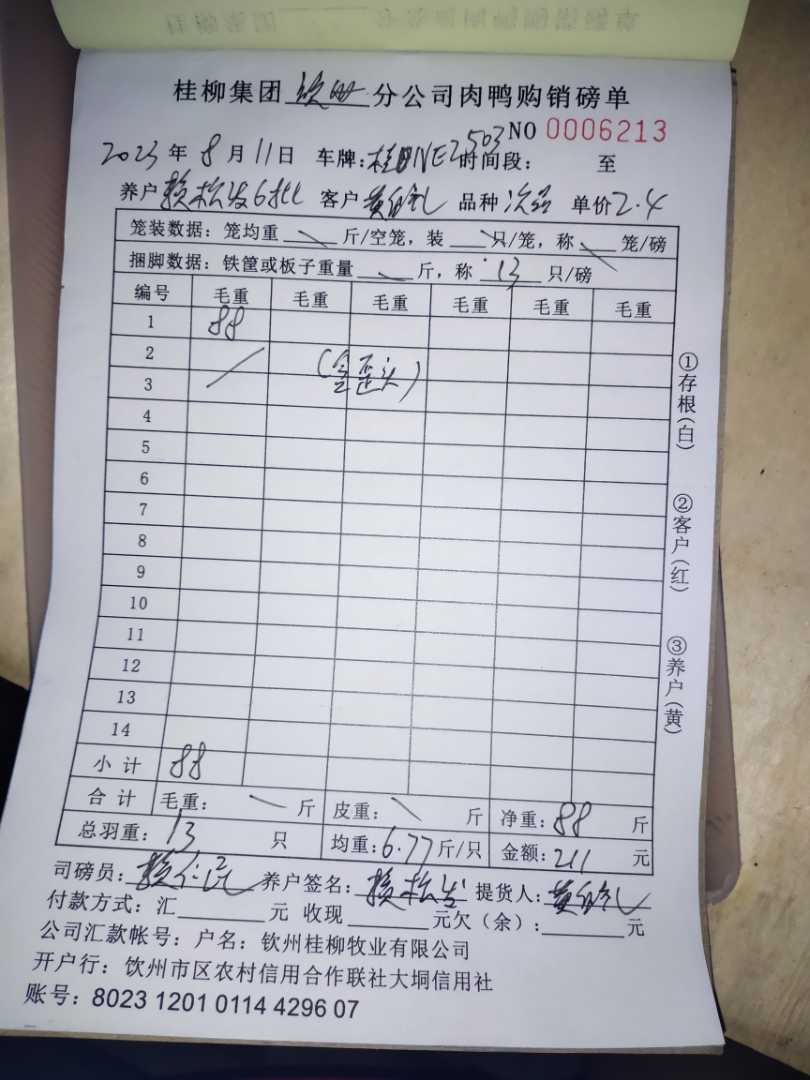 桂柳集团 钦州 分公司肉鸭购销磅单
NO 0006213
2023 年 8 月 11 日 车牌: 桂 NE2503 时间段: 至
养户 赖松发6批 客户 黄 礼 品种 次品 单价 2.4
笼装数据: 笼均重 \ 斤/空笼, 装 \ 只/笼, 称 \ 笼/磅
捆脚数据: 铁筐或板子重量 \ 斤, 称 13 只/磅
编号 毛重 毛重 毛重 毛重 毛重 毛重
1 88
2 /
(全歪头)
3
4
5
6
7
8
9
10
11
12
13
14
小计 88
合计 毛重: \ 斤 皮重: \ 斤 净重: 88 斤
总羽重: 13 只 均重: 6.77 斤/只 金额: 211 元
司磅员: 赖仁 养户签名: 赖松发 提货人: 黄 礼
付款方式: 汇 元 收现 元欠(余): 元
公司汇款帐号: 户名: 钦州桂柳牧业有限公司
开户行: 饮州市区农村信用合作联社大垌信用社
账号: 8023 1201 0114 4296 07
①存根(白)
②客户(红)
③养户(黄)